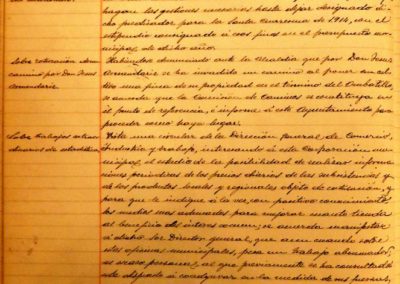 hagan las gestiones necesarias hasta dejar designado á
dicho predicador para la Santa Cuaresma de 1914, con el
estipendio consignado á esos fines en el presupuesto mu-
nicipal de dicho año.
Sobre roturación de un
camino por Don Juan
Habiéndose denunciado ante la Alcaldía que por Don Juan
se ha invadido un camino al poner en cul-
tivo una finca de su propiedad en el término del
se acuerda que la Comisión de Caminos se constituya en
el punto de referencia, é informe á este Ayuntamiento para
proceder como haya lugar.
Sobre trabajos extraor-
dinarios de estadística
Vista una circular de la Dirección general de Comercio,
Industria y trabajo, interesando á esta Corporación mu-
nicipal, el estudio de la posibilidad de realizar informa-
ciones periódicas de los precios diarios de las subsistencias y
de los productos locales y regionales objeto de cotización, y
para que le indique á la vez, con positivo conocimiento
los medios mas adecuados para mejorar cuanto tienda
al beneficio del interés común; se acuerda manifestar
á dicho Sor Director general, que aun cuando sobre
estas oficinas municipales, pesa un trabajo abrumador,
el personal, al que previamente se ha consultado
está dispuesto á coadyuvar en la medida de sus fuerzas,